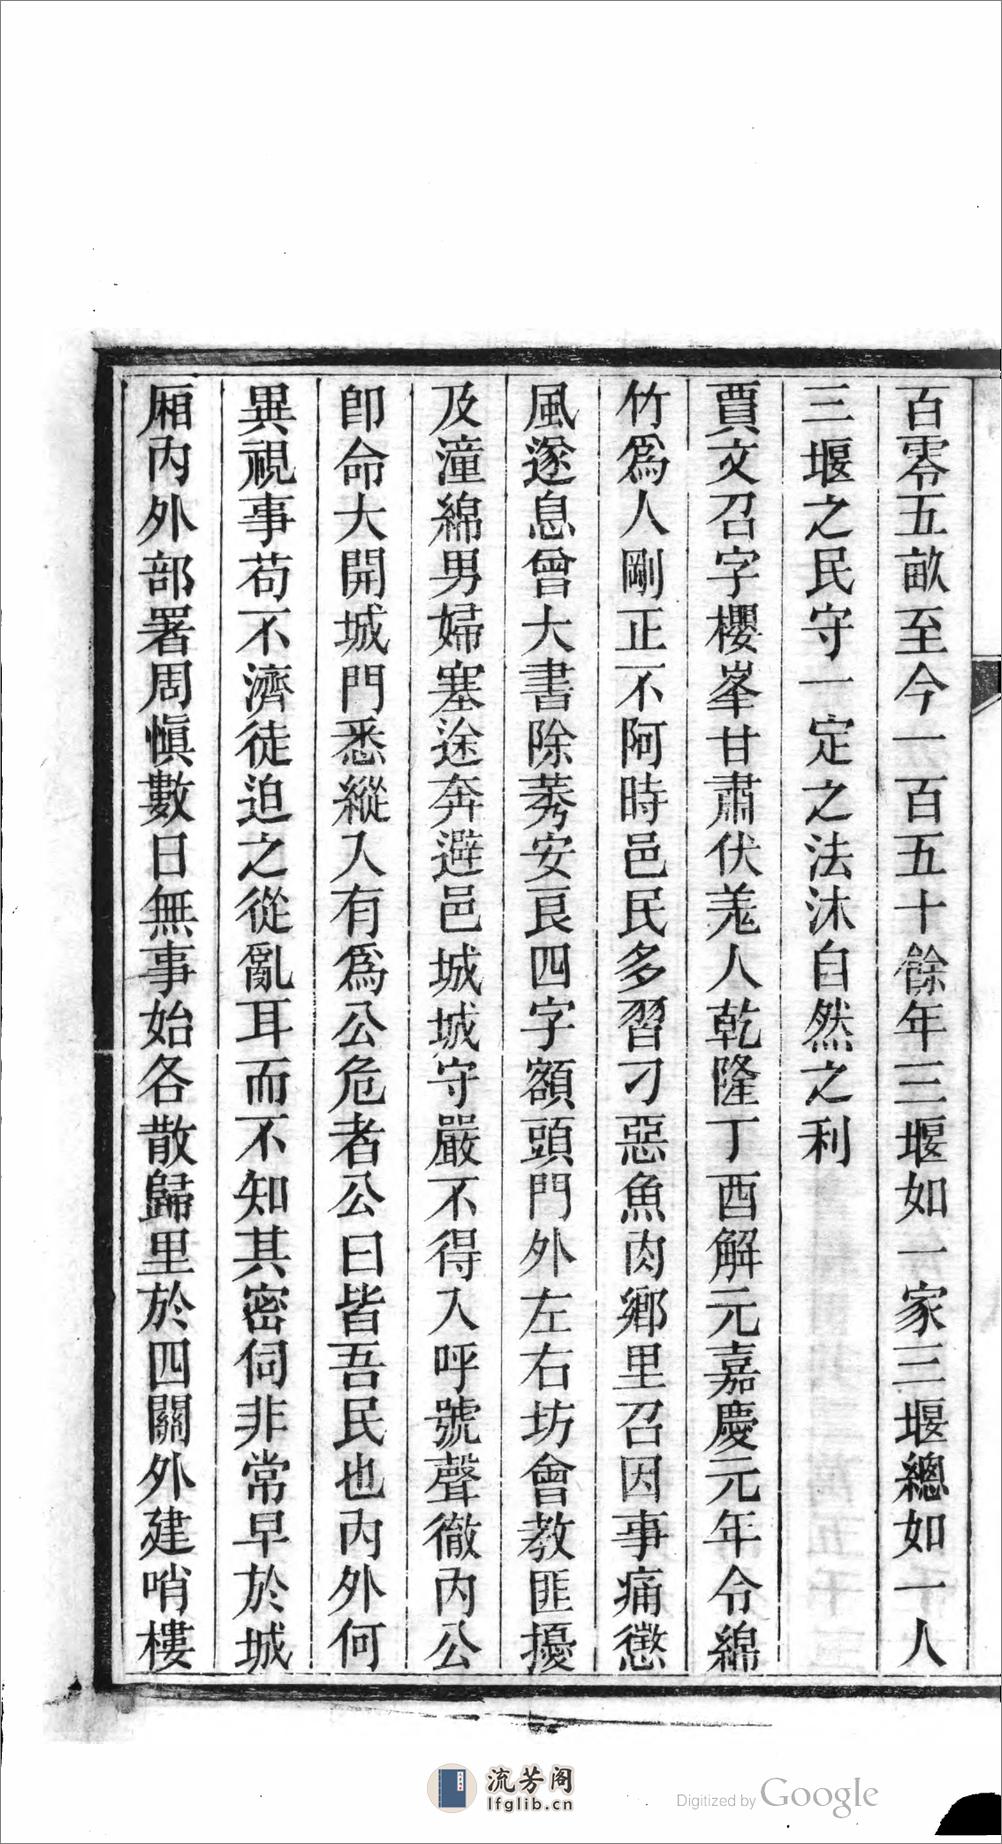 百零五畝至今一百五十餘年三堰如一家三堰總如一人
三堰之民守一定之法沐自然之利
賈文召字櫻峯甘肅伏羗人乾隆丁酉解元嘉慶元年令綿
竹爲人剛正不阿時邑民多習刁惡魚肉鄉里召因事痛懲
風遂息曾大書除莠安良四字額頭門外左右坊會教匪擾
及潼綿男婦塞途奔避邑城城守嚴不得入呼號聲徹內公
卽命大開城門悉縱入有爲公危者公曰皆吾民也內外何
異視事苟不濟徒迫之從亂耳而不知其密伺非常早於城
廂內外部署周愼數日無事始各散歸里於四關外建哨樓
流芳阁
lfglib.cn
Digitized by Google